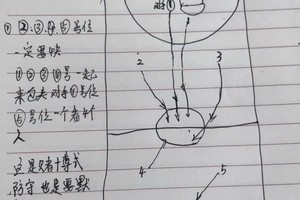 对手①
①、②、③、④、⑤号位
一定要快
①②③④号一起
来包夹对手①号位
⑤号位一个看4个
人
这是赌博式
防守也是要默
2
3
4
5